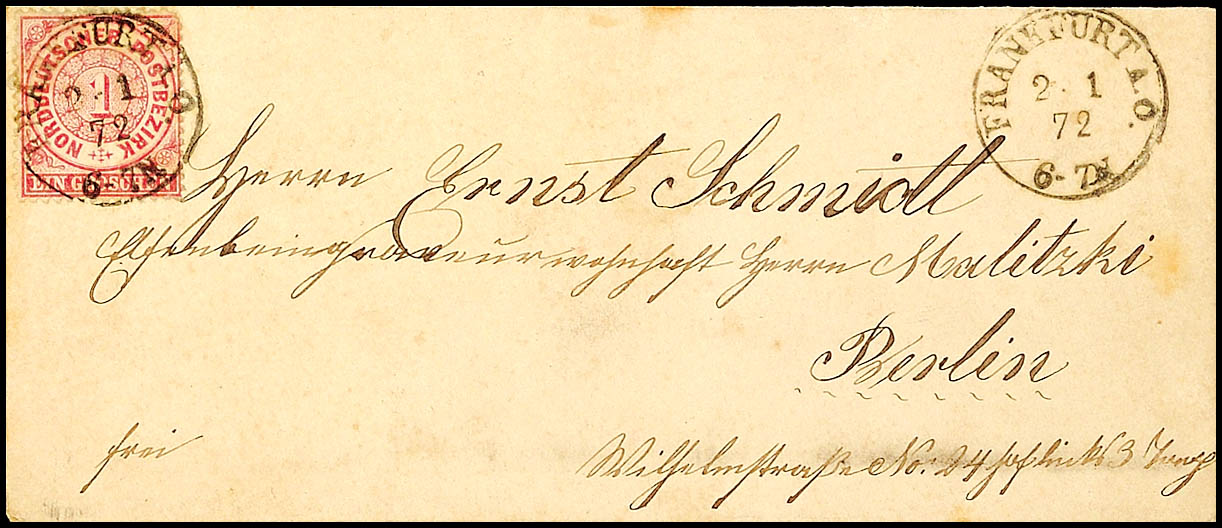 NORDDEUTSCHER POSTBEZIRK
1
EIN GROSCHEN
FRANKFURT A. O.
2. 1
72
6-7N
FRANKFURT A. O.
2. 1
72
6-7N
Herrn Ernst Schmidt
Elfenbeingraveur wohnhaft Herrn Malitzki
Berlin
frei
Wilhelmstraße No: 24 Hof links 3